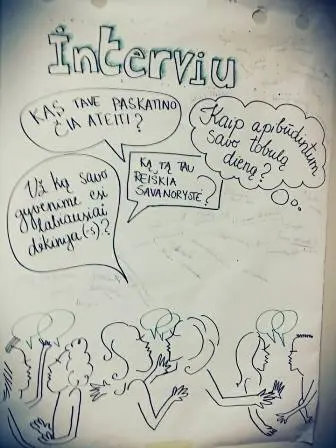 Interviu
KAS TAVE PASKATINO
ČIA ATEITI?
Kaip apibūdintum
savo tobulą
dieną?
KĄ TĄ TAU
REIŠKIA
SAVANORYSTĖ?
Už ką savo
gyvenime esi
labiausiai
dėkinga(-s)?